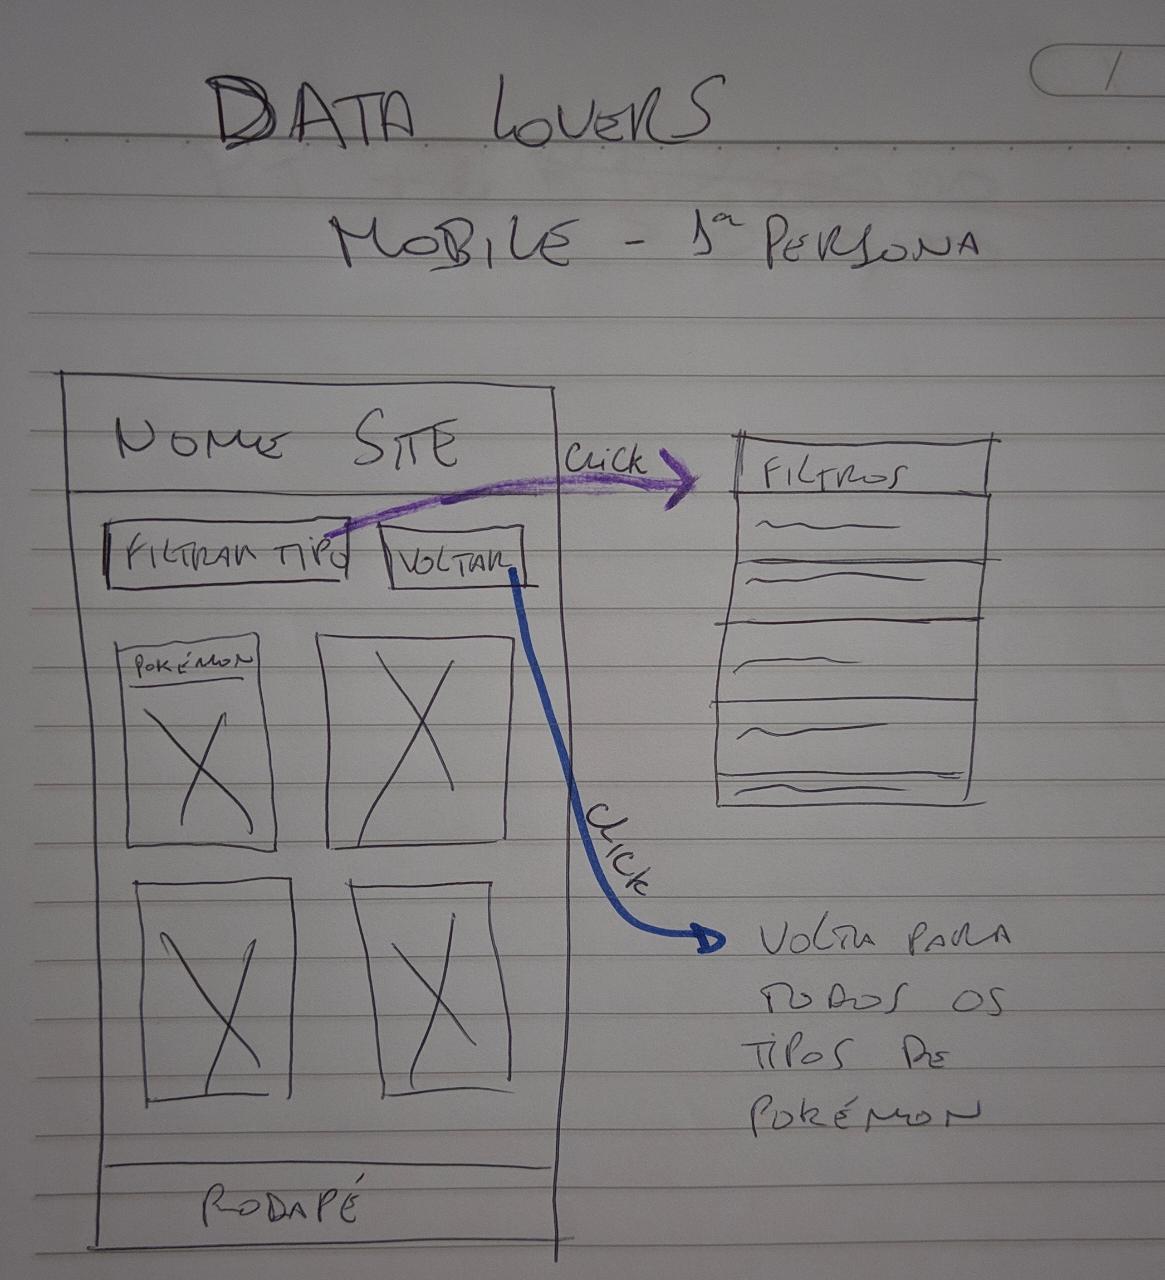 DATA LOVERS
MOBILE - 1ª PERSONA
NOME SITE
FILTRAR TIPO
VOLTAR
Click
FILTROS
POKÉMON
Click
VOLTA PARA
TODOS OS
TIPOS DE
POKÉMON
RODAPÉ